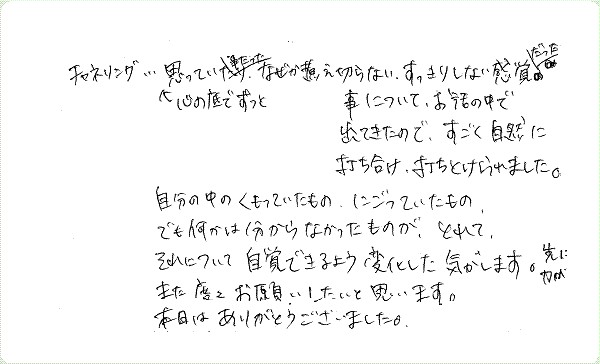 チャネリング… 思っていた なぜか 切らない、すっきりしない感覚 だった
心の底でずっと 事について、お話の中で
出てきたので、すごく自然に
打ち合け、打ちとけられました。
自分の中のくもっていたもの、にごっていたもの、
でも何かは分からなかったものが、とれて、
それについて 自覚できるよう 変化した 気がします。
また 度々 お願いしたいと思います。
本日は ありがとうございました。